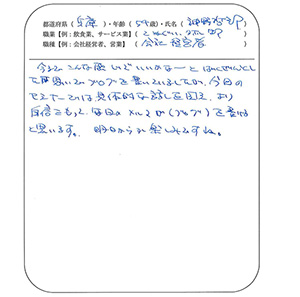 都道府県（兵庫）・年齢（59歳）・氏名（神野
職業【例：飲食業、サービス業】（
職種【例：会社経営者、営業】（会社経営者）
今まで、こんな感じでいいのかな〜と ばくぜんとし
た思いでブログを書いていましたが、今日の
セミナーでは具体的な話しを聞え、より
自信をもって毎日のメルマガ（ブログ）を書ける
と思います。 明日からが楽しみですね。